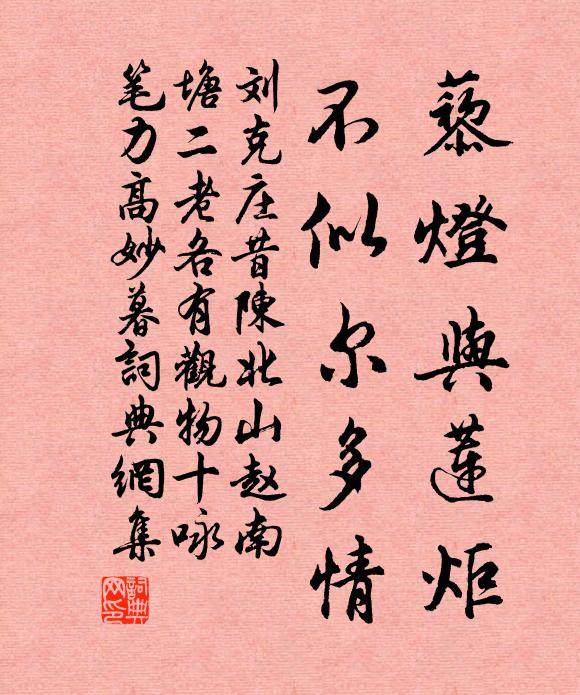 藜燈與蓮炬
不似尔多情
刘克庄昔陳北山赵南
塘二老各有觀物十咏
笔力高妙暮詞典網集
詞典
网印